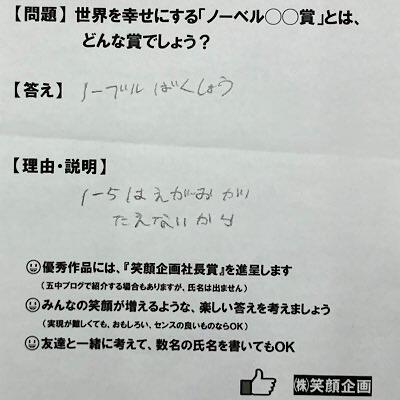 【問題】世界を幸せにする「ノーベル◯◯賞」とは、
どんな賞でしょう？
【答え】ノーブルばくしょう
【理由・説明】
1-5はえがおが
たえないから
優秀作品には、『笑顔企画社長賞』を進呈します
（五中ブログで紹介する場合もありますが、氏名は出ません）
みんなの笑顔が増えるような、楽しい答えを考えましょう
（実現が難しくても、おもしろい、センスの良いものならOK）
友達と一緒に考えて、数名の氏名を書いてもOK
㈱笑顔企画